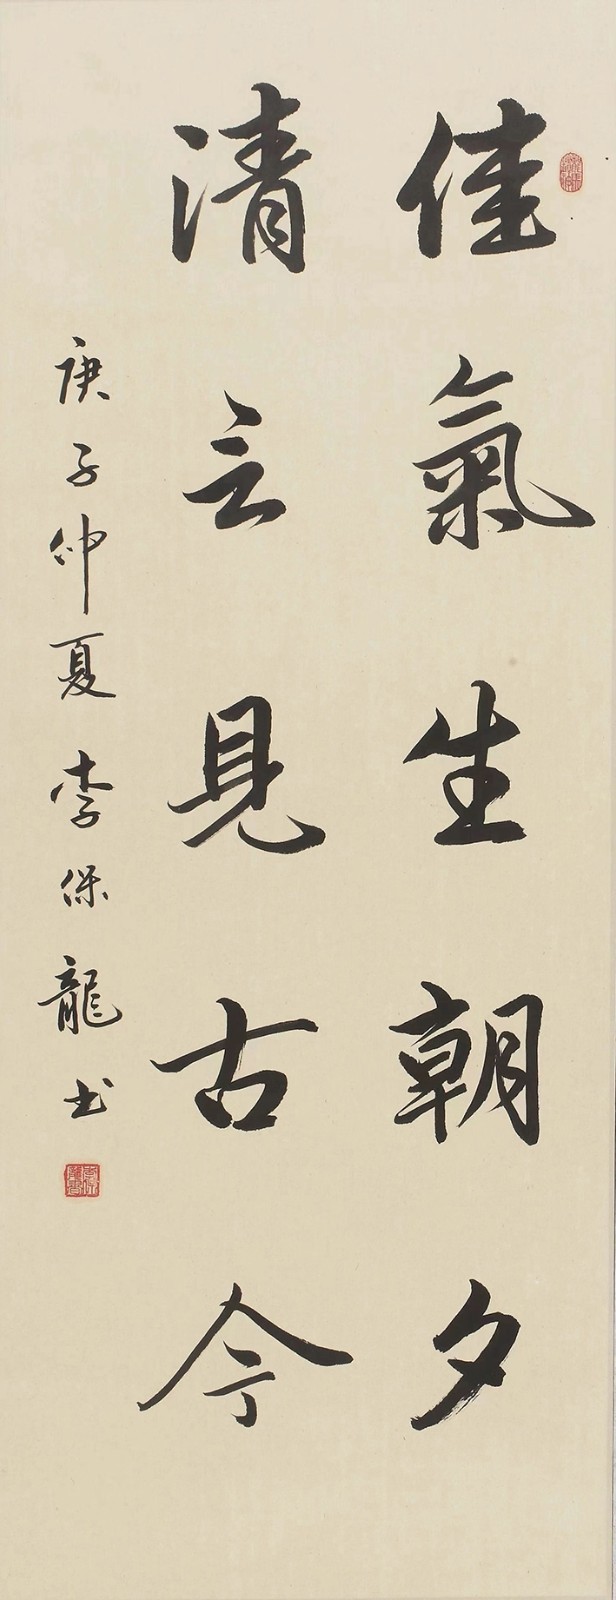 佳氣生朝夕
清言見古今
庚子仲夏李保龍书